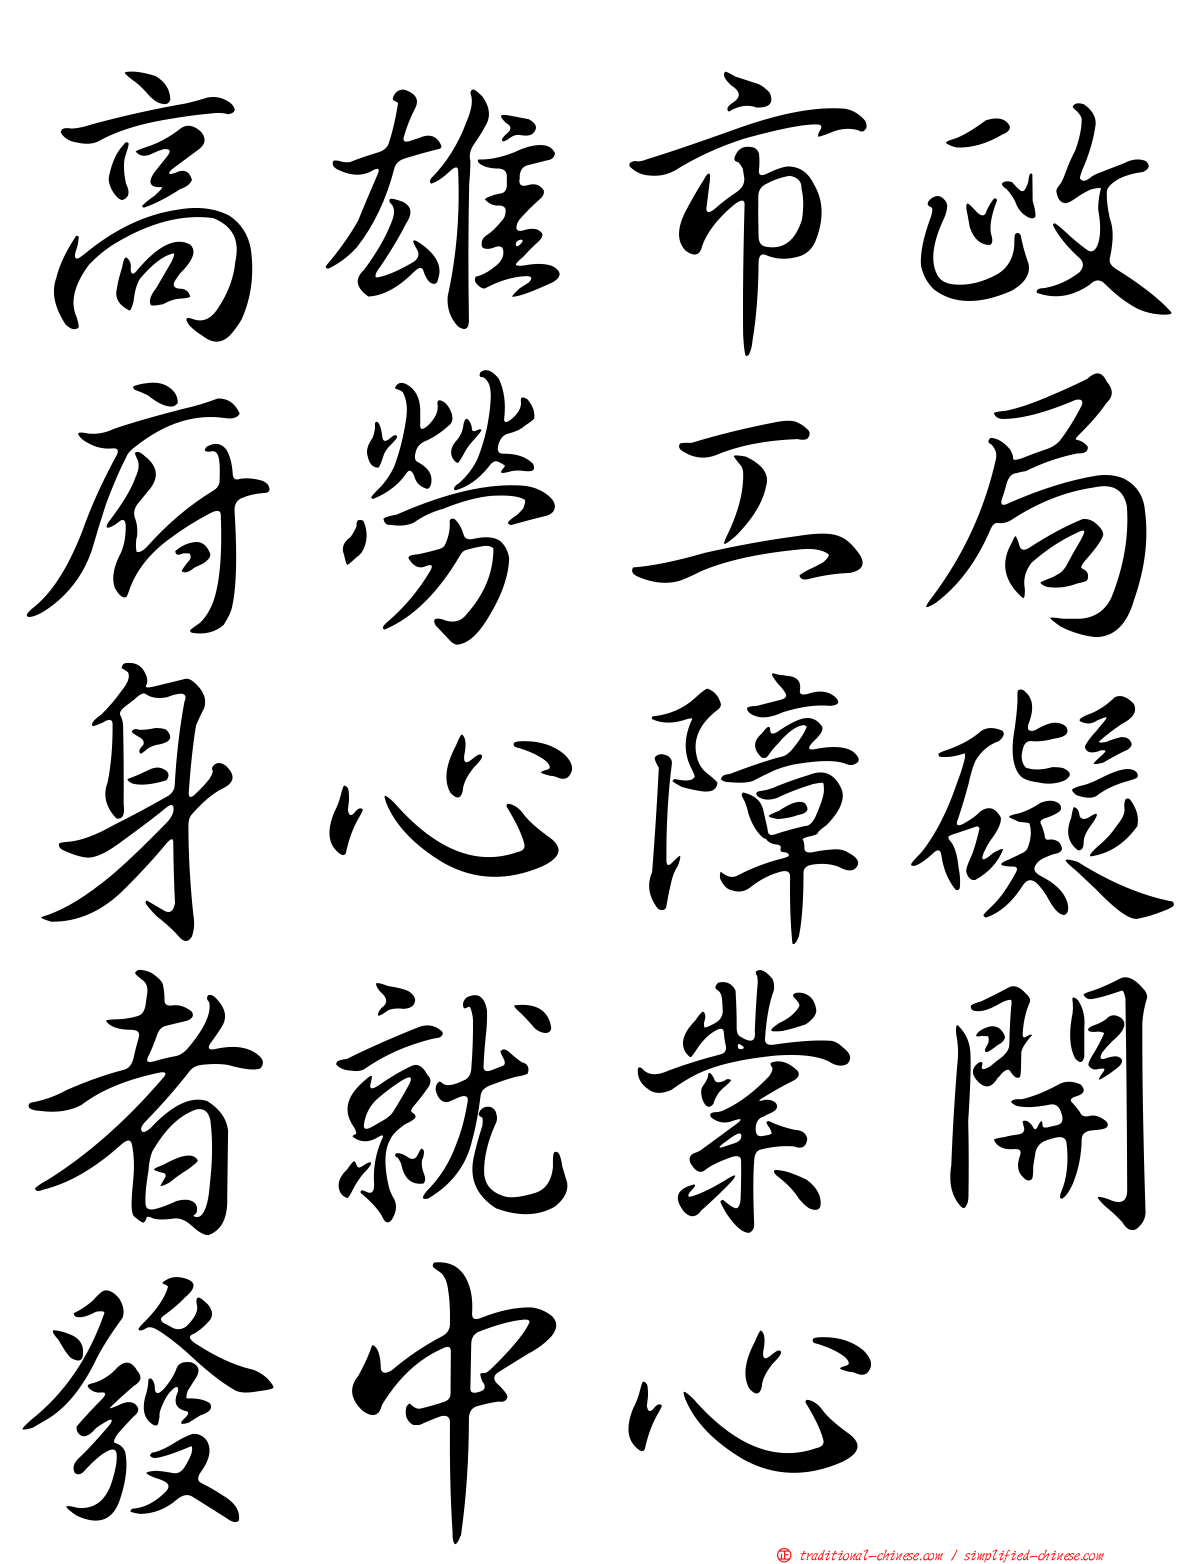 高雄市政
府勞工局
身心障礙
者就業開
發中心
正 traditional-chinese.com / simplified-chinese.com